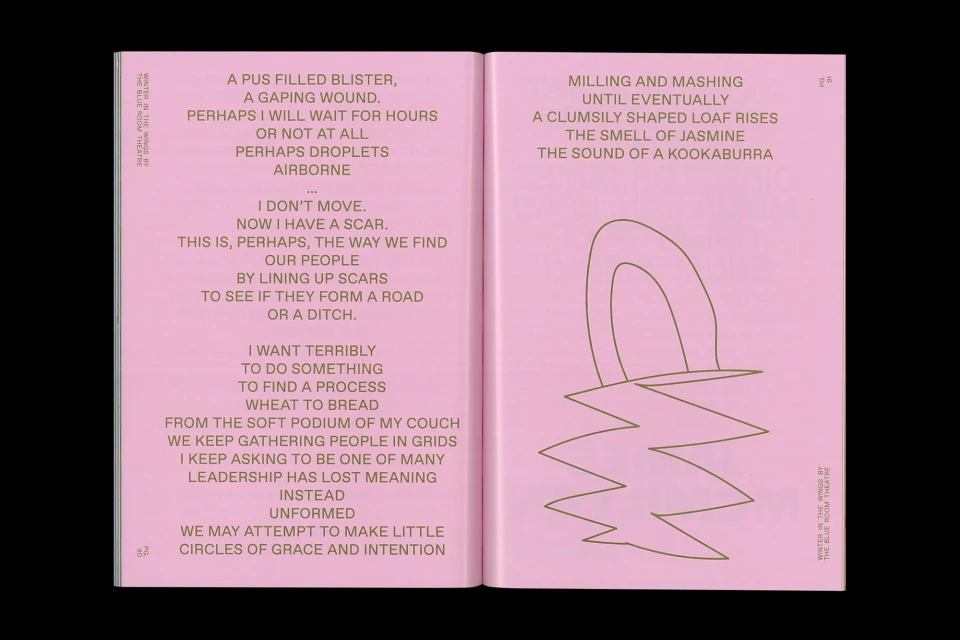 WINTER IN THE WINGS BY
THE BLUE ROOM THEATRE
A PUS FILLED BLISTER,
A GAPING WOUND.
PERHAPS I WILL WAIT FOR HOURS
OR NOT AT ALL
PERHAPS DROPLETS
AIRBORNE
...
I DON'T MOVE.
NOW I HAVE A SCAR.
THIS IS, PERHAPS, THE WAY WE FIND
OUR PEOPLE
BY LINING UP SCARS
TO SEE IF THEY FORM A ROAD
OR A DITCH.
I WANT TERRIBLY
TO DO SOMETHING
TO FIND A PROCESS
WHEAT TO BREAD
FROM THE SOFT PODIUM OF MY COUCH
WE KEEP GATHERING PEOPLE IN GRIDS
I KEEP ASKING TO BE ONE OF MANY
LEADERSHIP HAS LOST MEANING
INSTEAD
UNFORMED
WE MAY ATTEMPT TO MAKE LITTLE
CIRCLES OF GRACE AND INTENTION
PG.
90
MILLING AND MASHING
UNTIL EVENTUALLY
A CLUMSILY SHAPED LOAF RISES
THE SMELL OF JASMINE
THE SOUND OF A KOOKABURRA
PG.
91
WINTER IN THE WINGS BY
THE BLUE ROOM THEATRE